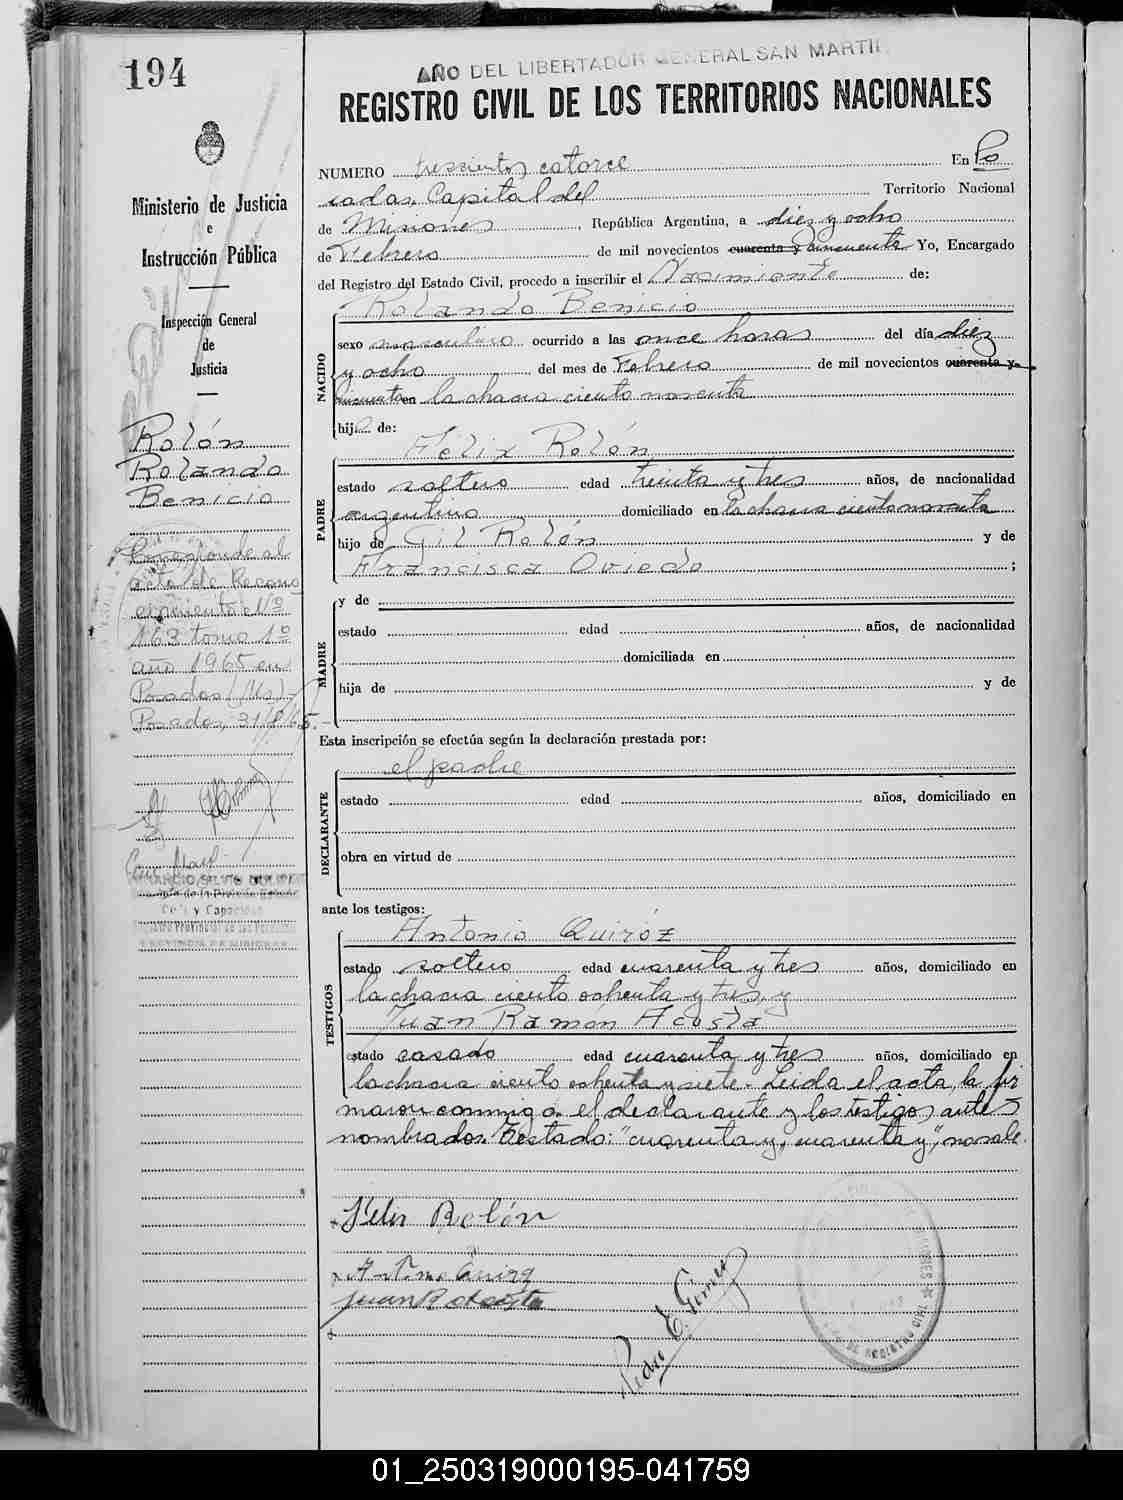 194
AÑO DEL LIBERTADOR GENERAL SAN MARTIN
REGISTRO CIVIL DE LOS TERRITORIOS NACIONALES
Ministerio de Justicia
e
Instrucción Pública
Inspección General
de
Justicia
Rolón
Rolando
Benicio
Corresponde al
acta de Recono
cimiento Nº
163 tomo 1º
año 1965 en
Posadas (Ms)
Posadas, 31/8/65.-
NUMERO trescientos catorce En Po
sadas, Capital del Territorio Nacional
de Misiones, República Argentina, a diez y ocho
de Febrero de mil novecientos cuarenta y cincuenta Yo, Encargado
del Registro del Estado Civil, procedo a inscribir el Nacimiento de:
Rolando Benicio
NACIDO
sexo masculino ocurrido a las once horas del día diez
y ocho del mes de Febrero de mil novecientos cuarenta y
cincuenta en la chacra ciento noventa
hijo de:
Félix Rolón
PADRE
estado soltero edad treinta y tres años, de nacionalidad
argentino domiciliado en la chacra ciento noventa
hijo de Gil Rolón y de
Francisca Oviedo ;
MADRE
y de
estado edad años, de nacionalidad
domiciliada en
hija de y de
Esta inscripción se efectúa según la declaración prestada por:
el padre
DECLARANTE
estado edad años, domiciliado en
obra en virtud de
ante los testigos:
Antonio Quiróz
TESTIGOS
estado soltero edad cuarenta y tres años, domiciliado en
la chacra ciento ochenta y tres, y
Juan Ramón Acosta
estado casado edad cuarenta y tres años, domiciliado en
la chacra ciento ochenta y siete. Leida el acta, la fir
maron conmigo el declarante y los testigos ante
nombrados. Testado: "cuarenta y, cuarenta y", no vale.
Felix Rolón
Antonio Quiroz
Juan R Acosta
Pedro E. Gómez
DE REGISTRO CIVIL
01_250319000195-041759